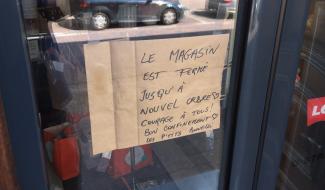 LE MAGASIN
EST FERMÉ
JUSQU'À
NOUVEL ORDRE
COURAGE À TOUS!
BON CONFINEMENT
LES P'TITS
Le